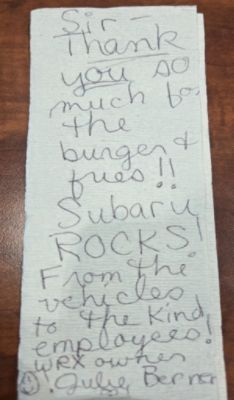 Sir -
Thank
you so
much for
the
burger &
fries!!
Subaru
ROCKS!
From the
vehicles
to the kind
employees!
WRX owner
Berner